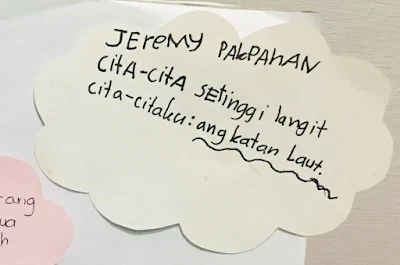 JEREMY PAKPAHAN
CITA-CITA SETinggi langit
cita-citaku: angkatan Laut.
rang
ua
h